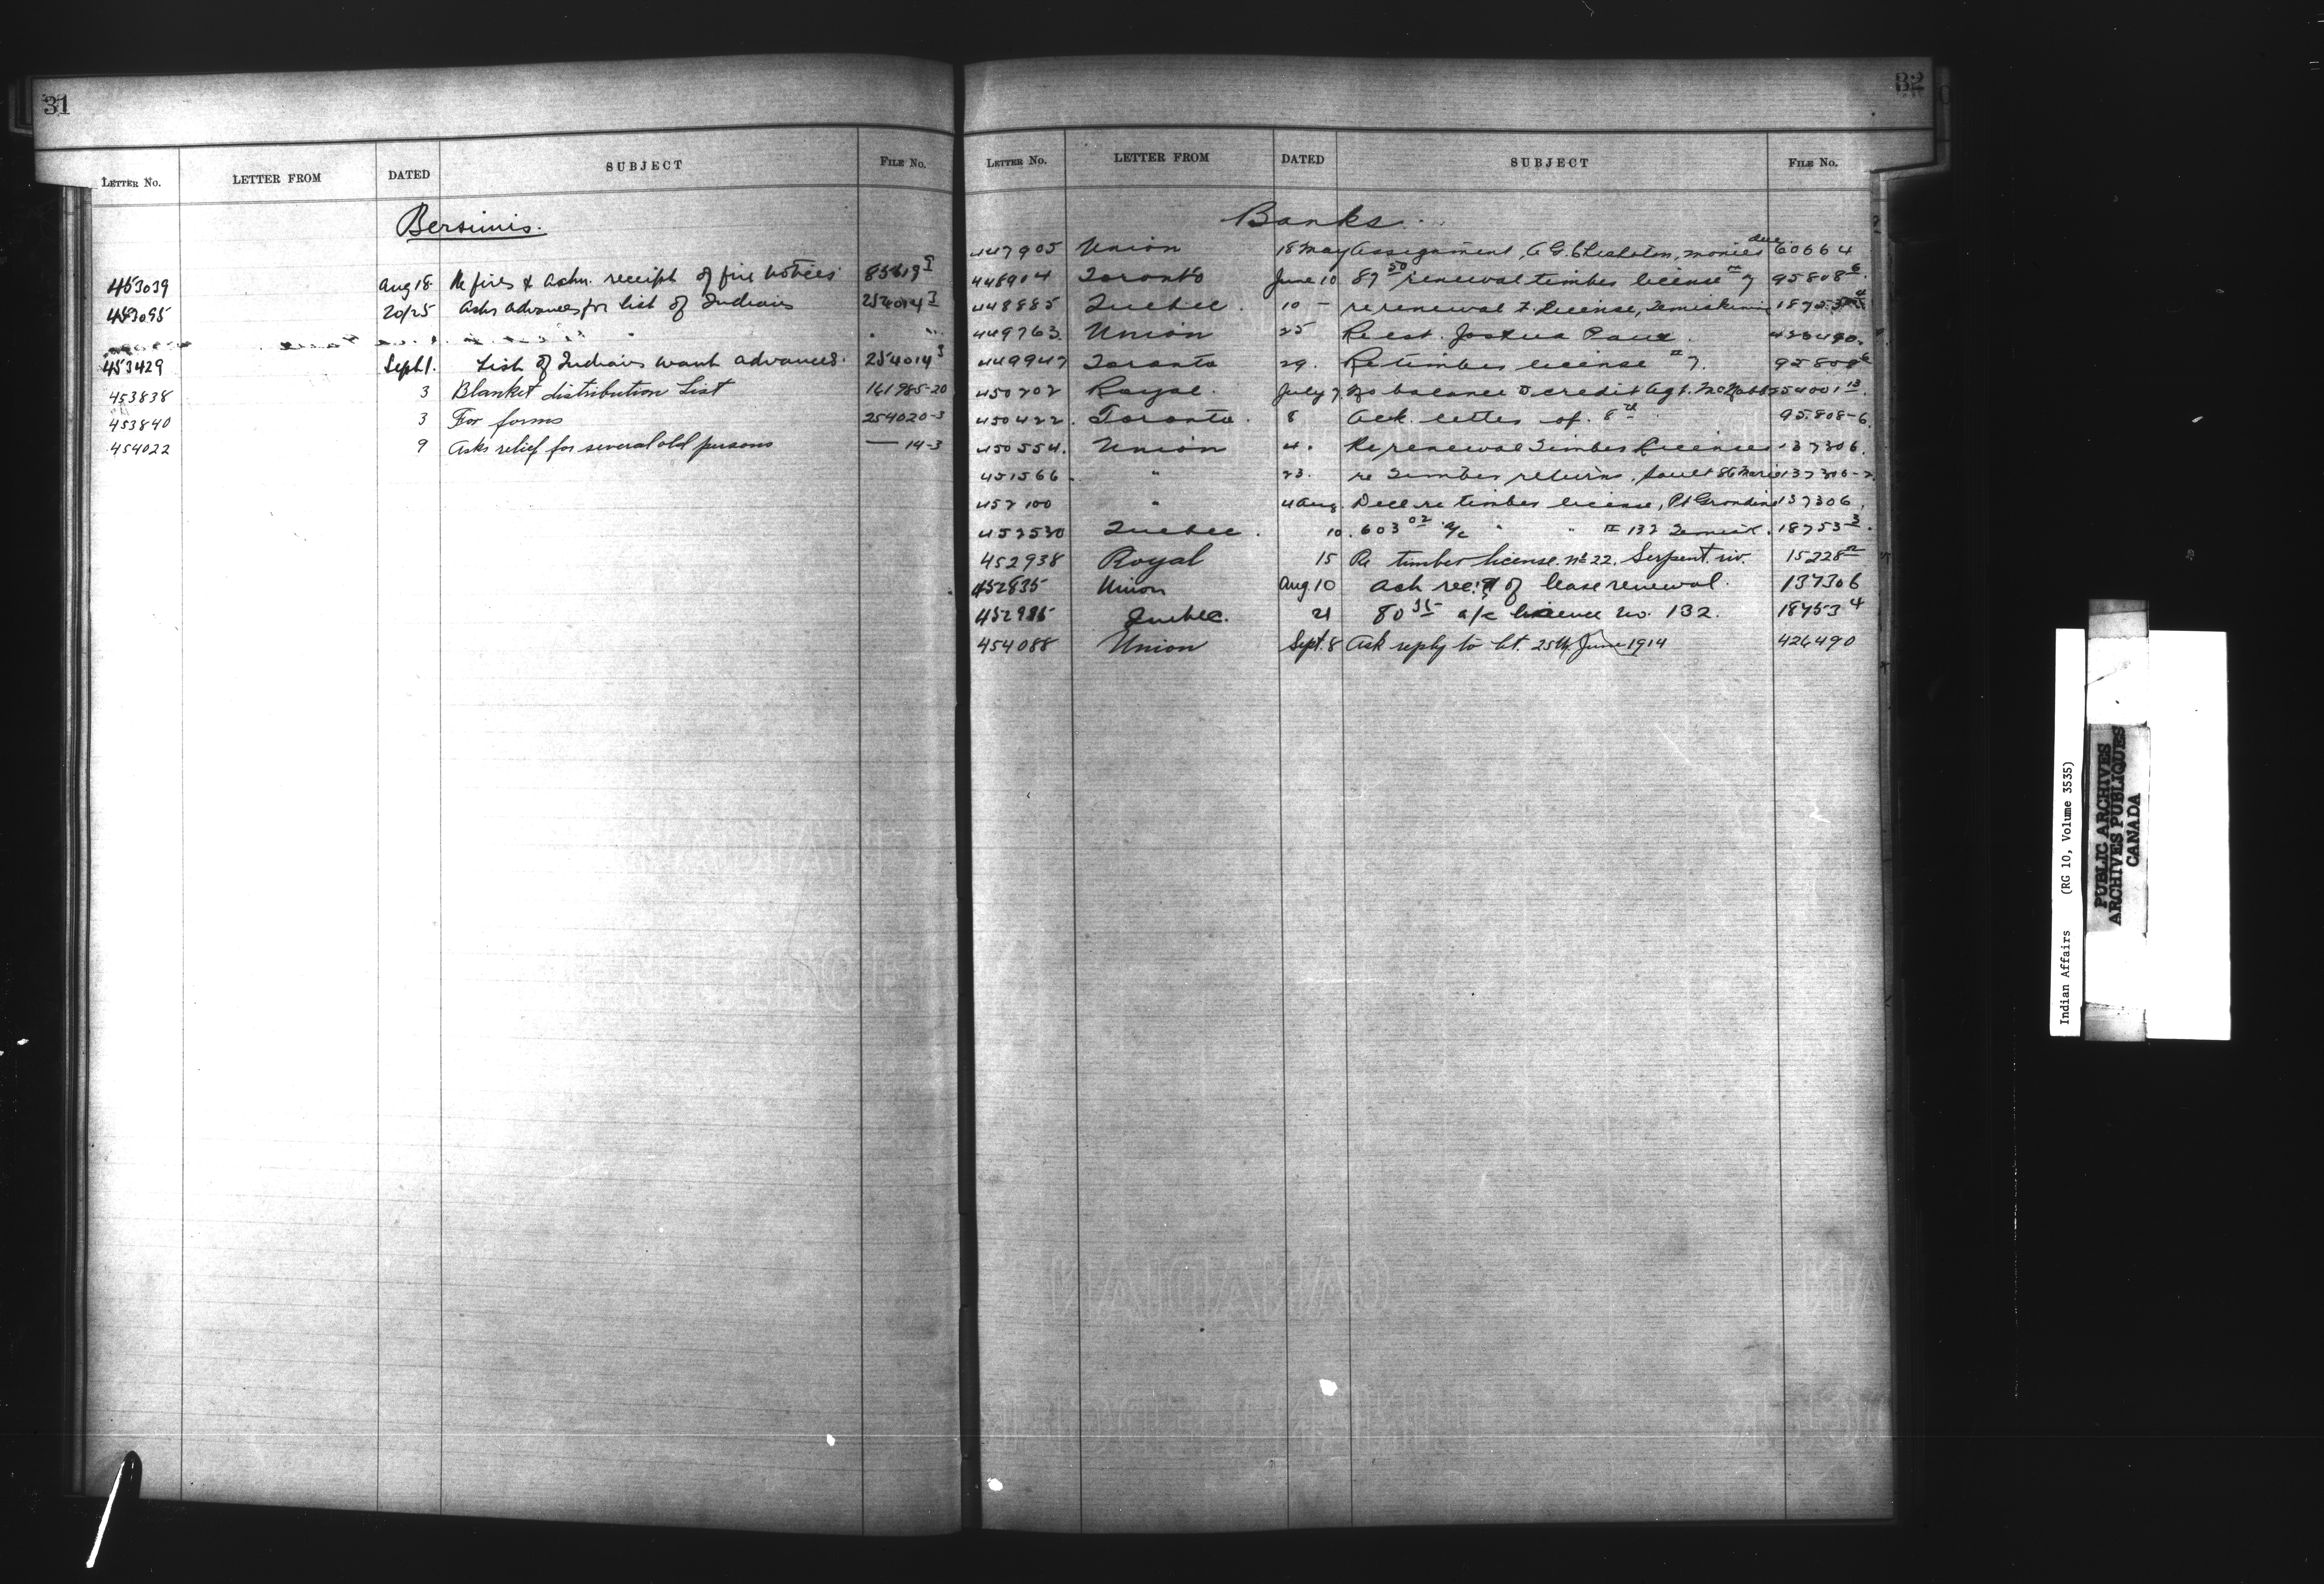 31
LETTER No. LETTER FROM DATED SUBJECT FILE No.
Bersimis.
453039 Aug 18 Re fires & ackn. receipt of fire notices 85619 I
453095 20/25 Asks advances for list of Indians 254014 I
453429 Sept 1. List of Indians want advances. 254014 3
453838 3 Blanket distribution List 161985-20
453840 3 For forms 254020-3
454022 9 Asks relief for several old persons — 14-3
32
LETTER No. LETTER FROM DATED SUBJECT FILE No.
Banks.
447905 Union 18 May Assignment, A G Chisholm, monies due 60664
448914 Toronto June 10 87 50 renewal timber license 7 95808 6.
448885 Quebec. 10 - re renewal T. License, Temiskiming 18753
449763 Union 25 Re est. Joshua 426490.
449947 Toronto 29. Re timber license 7. 95808 6
450202 Royal. July 7 No balance credit Agt. McNabb 254001 13.
450422. Toronto. 8 Ack. letter of 8th 95.808-6.
450554. Union 4. Re renewal Timber Licenses 137306.
451566. " 23. re Timber returns, Sault Ste Marie 137306-2
452100 " 4 Aug. Decl. re timber license, Pt Grondine 137306.
452530 Quebec. 10. 603 02 a/c " " 132 Temisk. 18753 3.
452938 Royal 15 Re timber license. No 22, Serpent riv. 15228
452835 Union Aug. 10 Ack rec't of lease renewal. 137306
452985 Quebec. 21 80 35 a/c licence no. 132. 18753 4
454088 Union Sept. 8 Ask reply to lt. 25th June 1914 426490
Indian Affairs (RG 10, Volume 3535)
PUBLIC ARCHIVES
ARCHIVES PUBLIQUES
CANADA